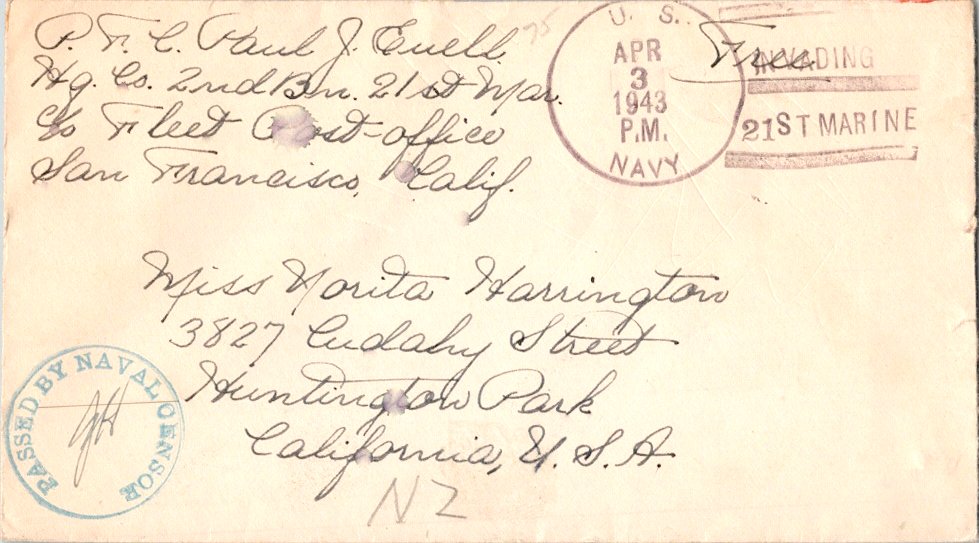 P.F.C. Paul J. Euell
Hq. Co. 2nd Bn. 21st Mar.
c/o Fleet Post-office
San Francisco, Calif.
75
U. S.
APR
3
1943
P.M.
NAVY
Free
INVADING
21ST MARINE
Miss Norita Harrington
3827 Cudahy Street
Huntington Park
California, U.S.A.
PASSED BY NAVAL CENSOR
NZ